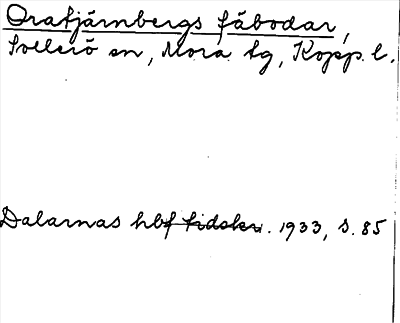 Oratjärnbergs fäbodar,
Sollerö sn, Mora tg, Kopp. l.
Dalarnas hbf tidskr. 1933, s. 85